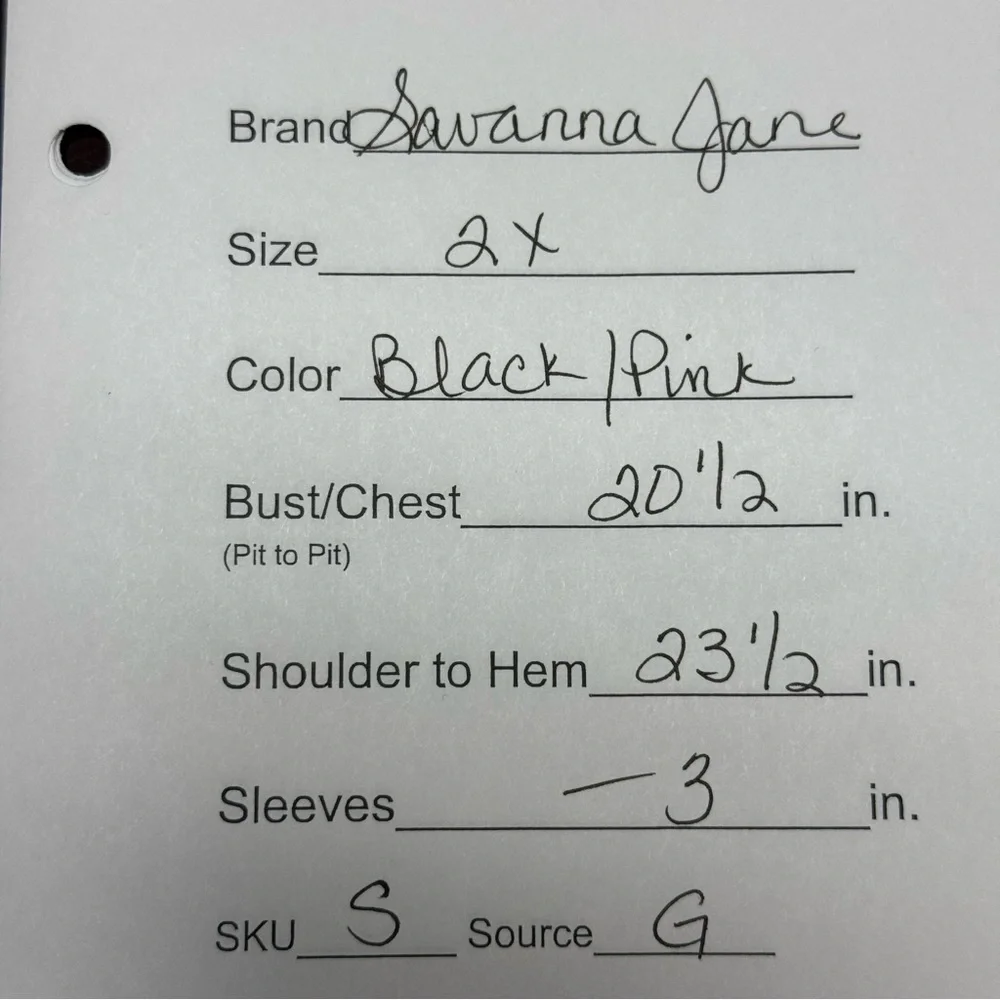 Brand Savanna Jane
Size 2X
Color Black/Pink
Bust/Chest 20 1/2 in.
(Pit to Pit)
Shoulder to Hem 23 1/2 in.
Sleeves — 3 in.
SKU S Source G